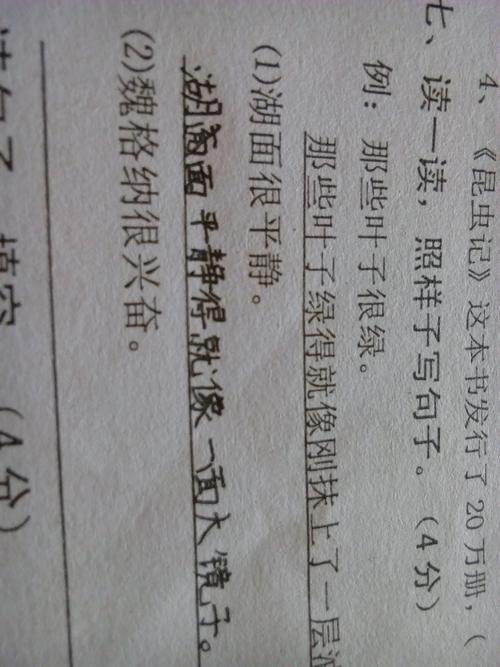 4、《昆虫记》这本书发行了20万册，（
七、读一读，照样子写句子。（4分）
例：那些叶子很绿。
那些叶子绿得就像刚抹上了一层
(1)湖面很平静。
湖面平静得就像一面大镜子。
(2)魏格纳很兴奋。
填空（4分）